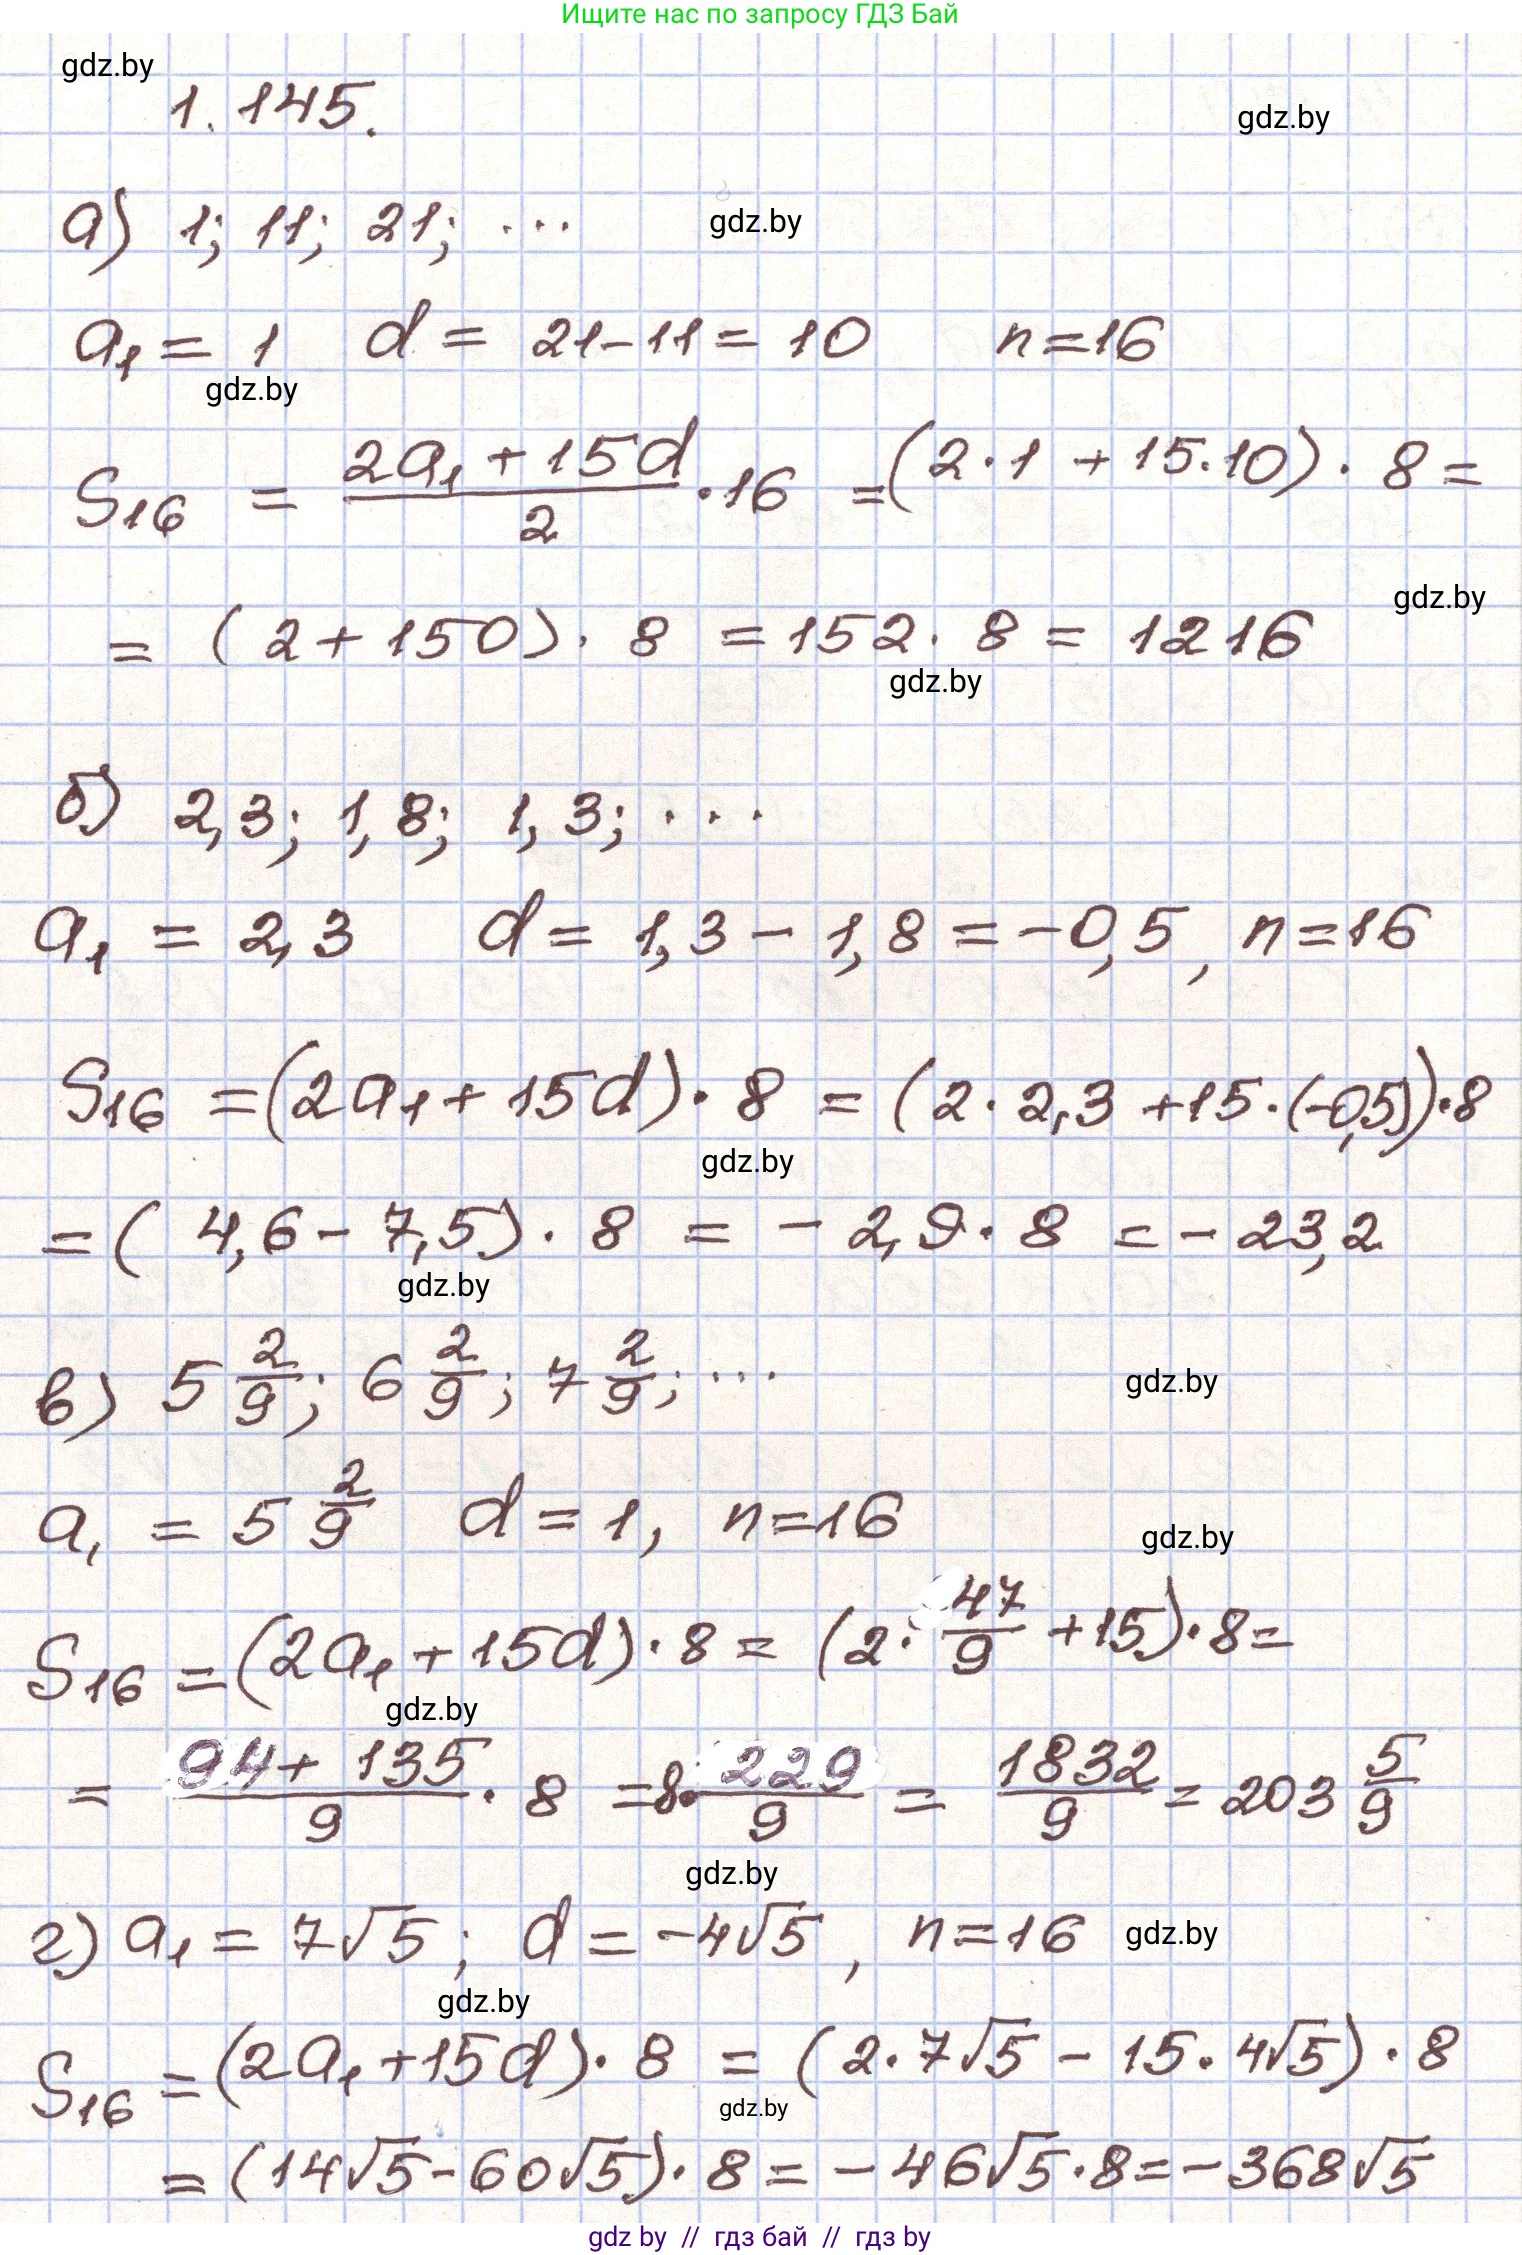 Ищите нас по запросу ГДЗ Бай
gdz.by
1.145.
gdz.by
а) 1; 11; 21; ...
gdz.by
a₁ = 1 d = 21-11 = 10 n=16
gdz.by
S₁₆ = (2a₁ + 15d)/2 · 16 = (2·1 + 15·10) · 8 =
gdz.by
= (2+150) · 8 = 152 · 8 = 1216
gdz.by
б) 2,3; 1,8; 1,3; ...
a₁ = 2,3 d = 1,3 - 1,8 = -0,5, n=16
S₁₆ = (2a₁ + 15d) · 8 = (2 · 2,3 + 15 · (-0,5)) · 8
gdz.by
= (4,6 - 7,5) · 8 = - 2,9 · 8 = - 23,2
gdz.by
в) 5 2/9; 6 2/9; 7 2/9; ...
gdz.by
a₁ = 5 2/9 d = 1, n=16
gdz.by
S₁₆ = (2a₁ + 15d) · 8 = (2 · 47/9 + 15) · 8 =
gdz.by
= (94 + 135)/9 · 8 = 8 · 229/9 = 1832/9 = 203 5/9
gdz.by
г) a₁ = 7√5; d = -4√5, n=16
gdz.by
gdz.by
S₁₆ = (2a₁ + 15d) · 8 = (2 · 7√5 - 15 · 4√5) · 8
gdz.by
= (14√5 - 60√5) · 8 = - 46√5 · 8 = - 368√5
gdz by // гдз бай // гдз by